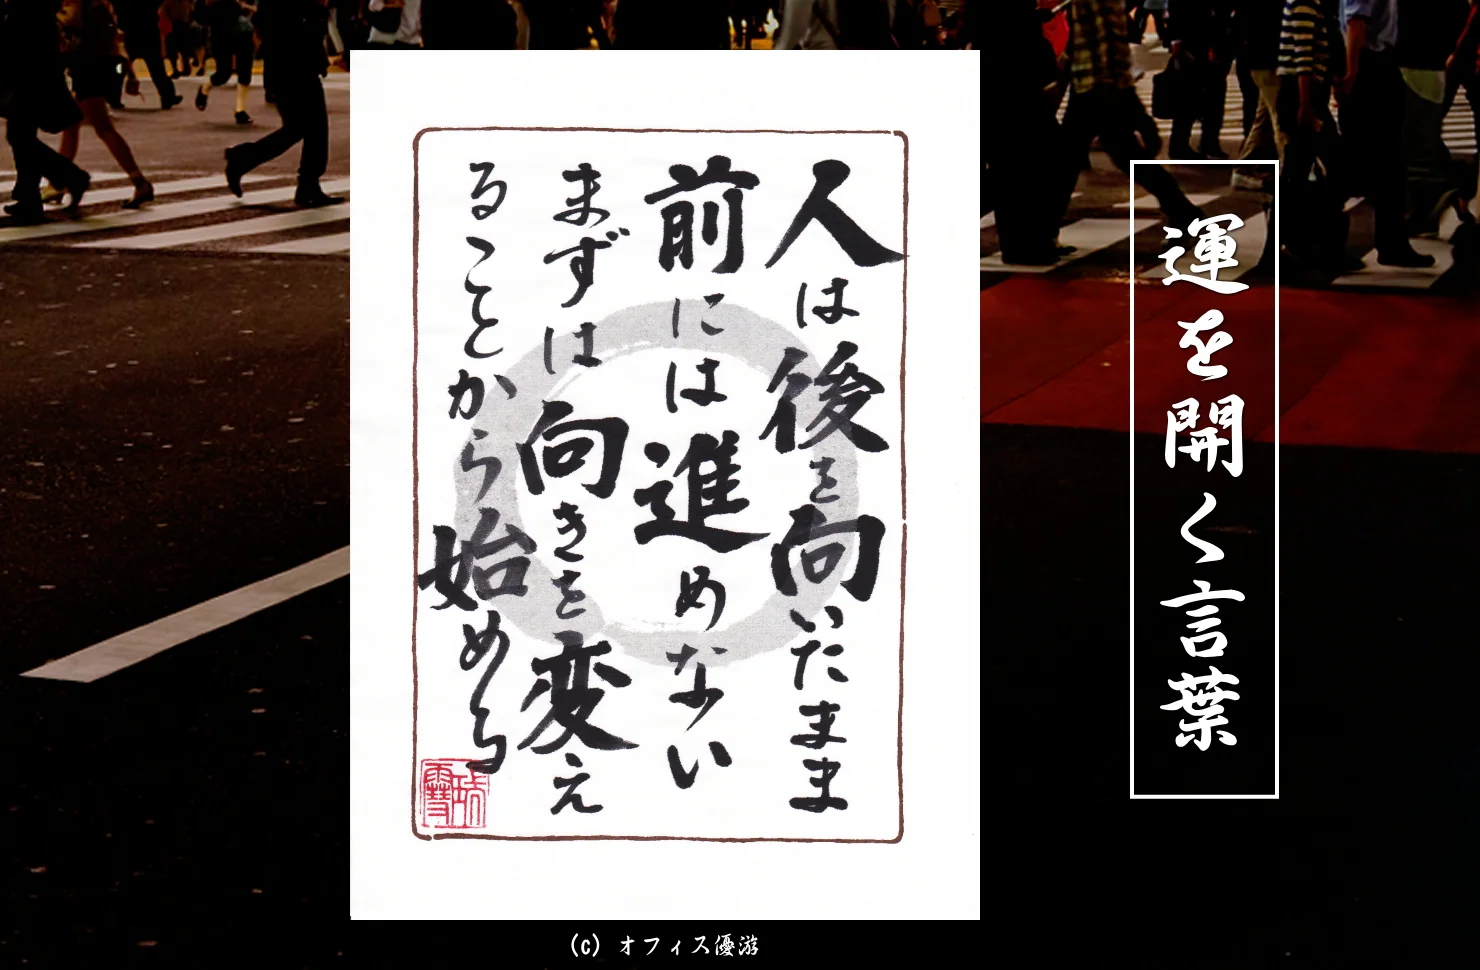 運を開く言葉
人は後を向いたまま
前には進めない
まずは向きを変え
ることから始める
(c) オフィス優游